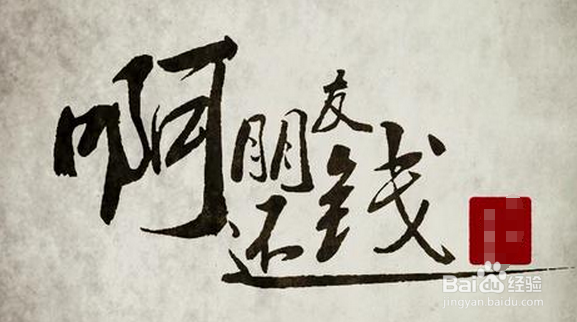 啊朋友
还钱
Baidu经验
jingyan.baidu.com